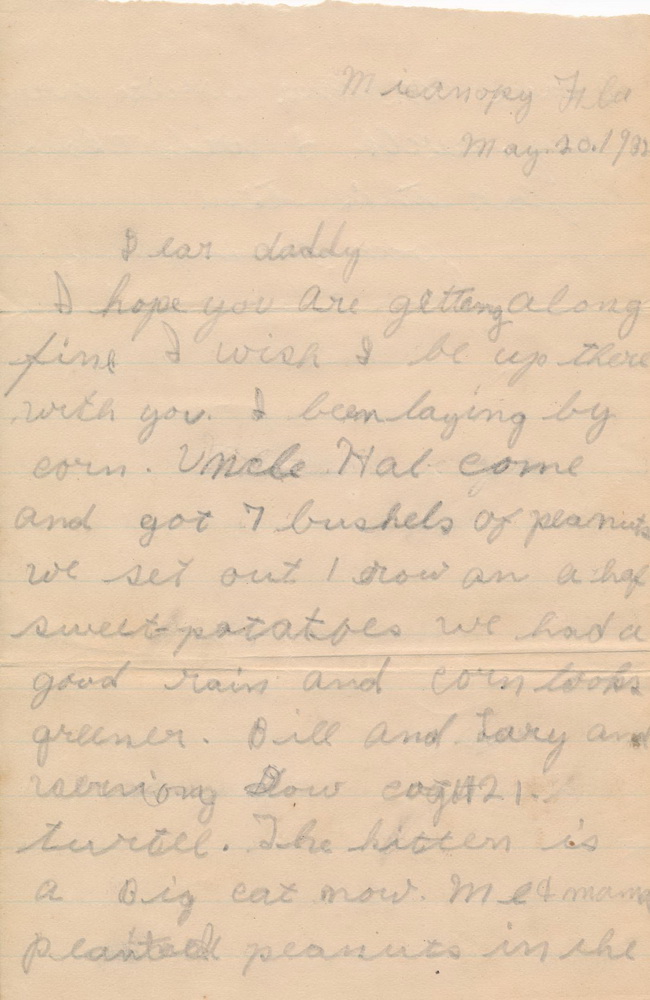 Micanopy Fla
May. 20. 19
Dear daddy
I hope you are getting along
fine I wish I be up there
with you. I been laying by
corn. Uncle Hal come
and got 7 bushels of peanuts
we set out 1 row an a haf
sweet potatoes we had a
good rain and corn looks
greener. Bill and Lary and
21
turtel. The kitten is
a Big cat now. Me & mama
planted peanuts in the